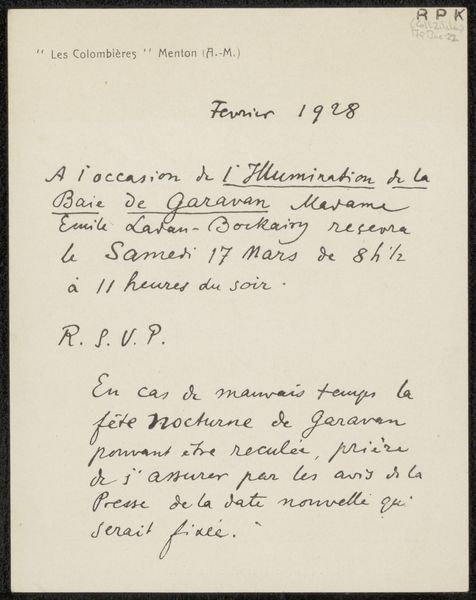 RPK
" Les Colombières " Menton (A.-M.)
Fevrier 1928
A l'occasion de l'Illumination de la
Baie de Garavan Madame
Emile Ladan-Bockairy recevra
le Samedi 17 Mars de 8h½
à 11 heures du soir.
R. S. V. P.
En cas de mauvais temps la
fête nocturne de Garavan
pouvant être reculée, prière
de s'assurer par les avis de la
Presse de la date nouvelle qui
serait fixée.